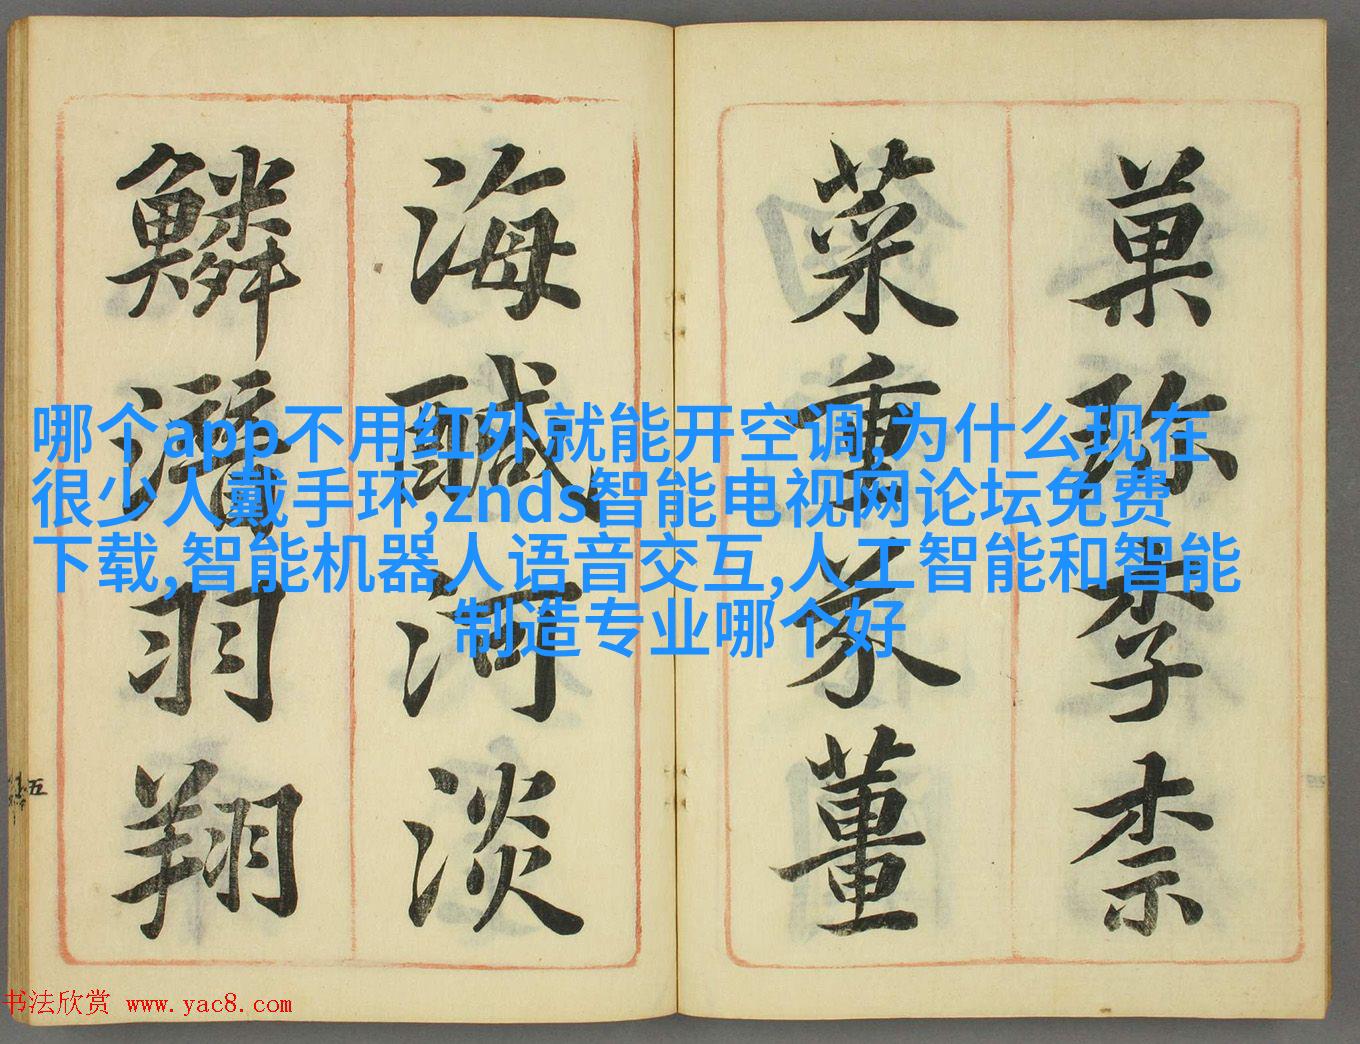 菓珎李柰
菜重芥薑
海醎河淡
鱗潛羽翔
五
哪个app不用红外就能开空调,为什么现在
很少人戴手环,znds智能电视网论坛免费
下载,智能机器人语音交互,人工智能和智能
制造专业哪个好
书法欣赏 www.yac8.com